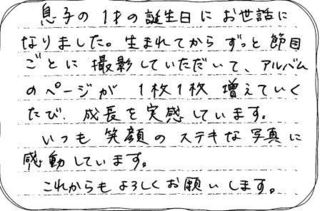 息子の1才の誕生日にお世話に
なりました。生まれてからずっと節目
ごとに撮影していただいて、アルバム
のページが1枚1枚増えていく
たび、成長を実感しています。
いつも笑顔のステキな写真に
感動しています。
これからもよろしくお願いします。